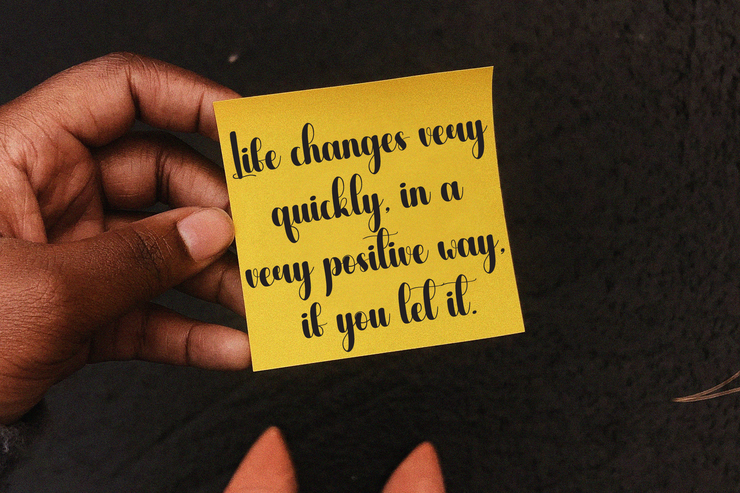 Life changes very
quickly, in a
very positive way,
if you let it.